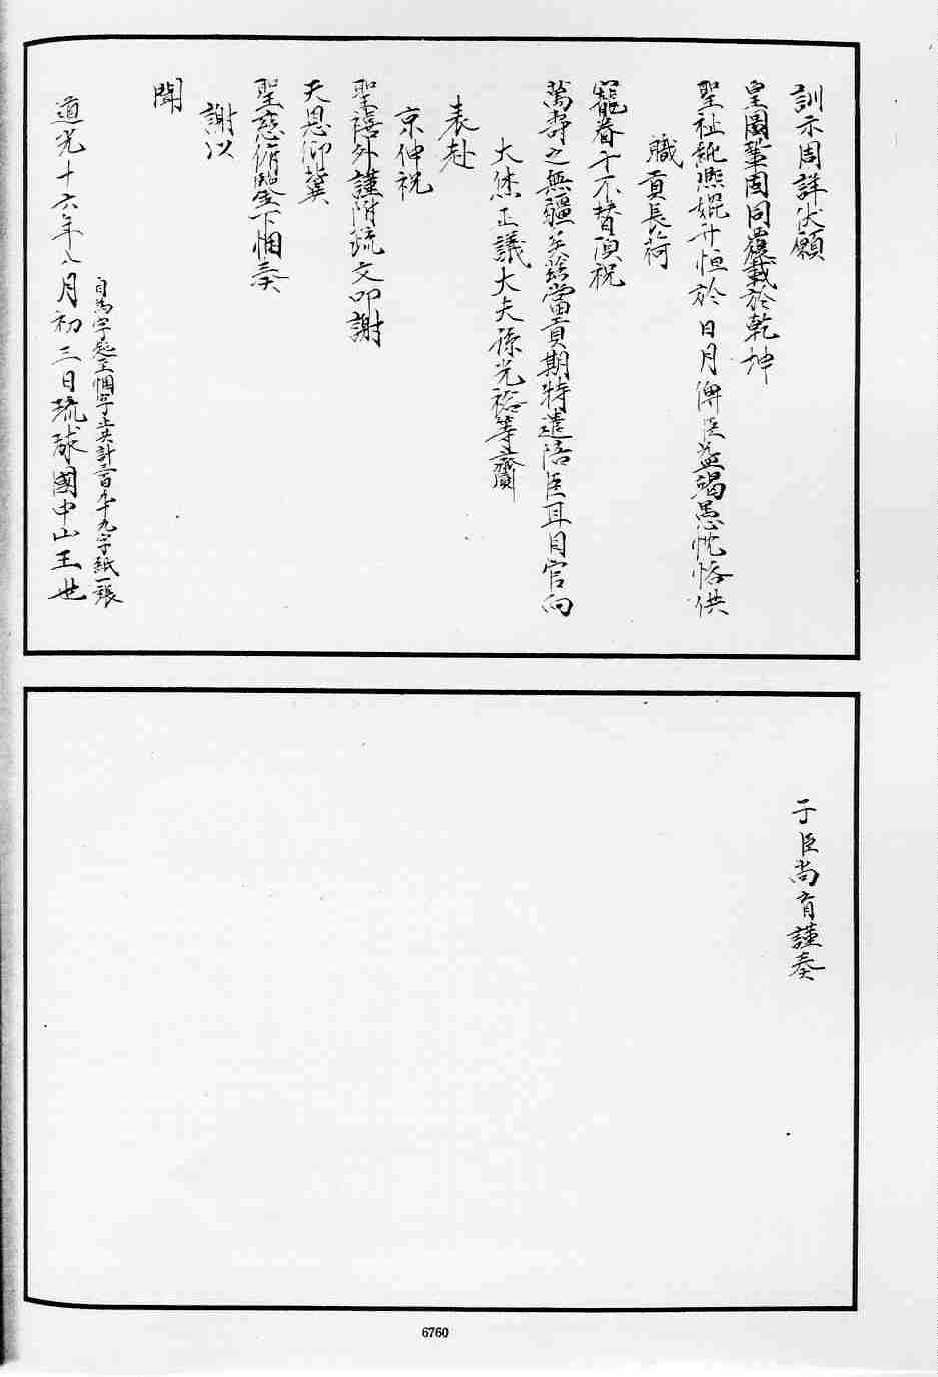 訓示周詳伏願
皇圖鞏固同覆載於乾坤
聖祉純熙媲升恒於日月俾臣益竭愚忱恪供
職貢長荷
寵眷于不替頂祝
萬壽之無疆矣茲當貢期特遣陪臣耳目官向
大烋正議大夫孫光裕等齎
表赴
京伸祝
聖禧外謹附疏文叩謝
天恩仰冀
聖慈俯鑒下悃奏
謝以
聞
自為字起至悃字止共計三百九十九字紙一張
道光十六年八月初三日琉球國中山王世
子臣尚育謹奏
6760